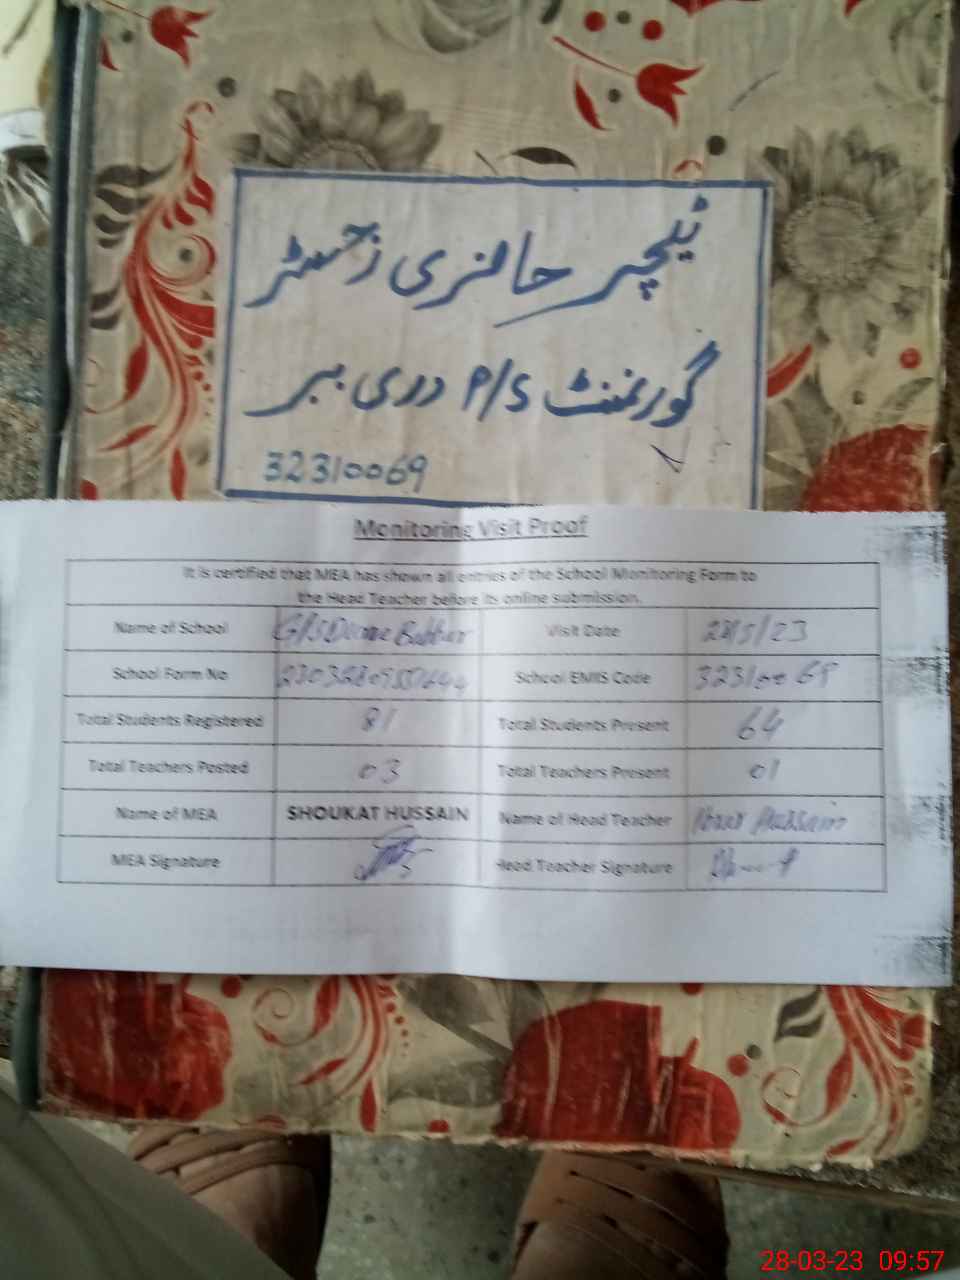 ٹیچر حاضری رجسٹر
گورنمنٹ P/S دری ببر
32310069
Monitoring Visit Proof
It is certified that MEA has shown all entries of the School Monitoring Form to
the Head Teacher before its online submission.
Name of School Visit Date
School Form No School EMIS Code 32310069
Total Students Registered 81 Total Students Present 64
Total Teachers Posted 03 Total Teachers Present 01
Name of MEA SHOUKAT HUSSAIN Name of Head Teacher Hussain
MEA Signature Head Teacher Signature
28-03-23 09:57